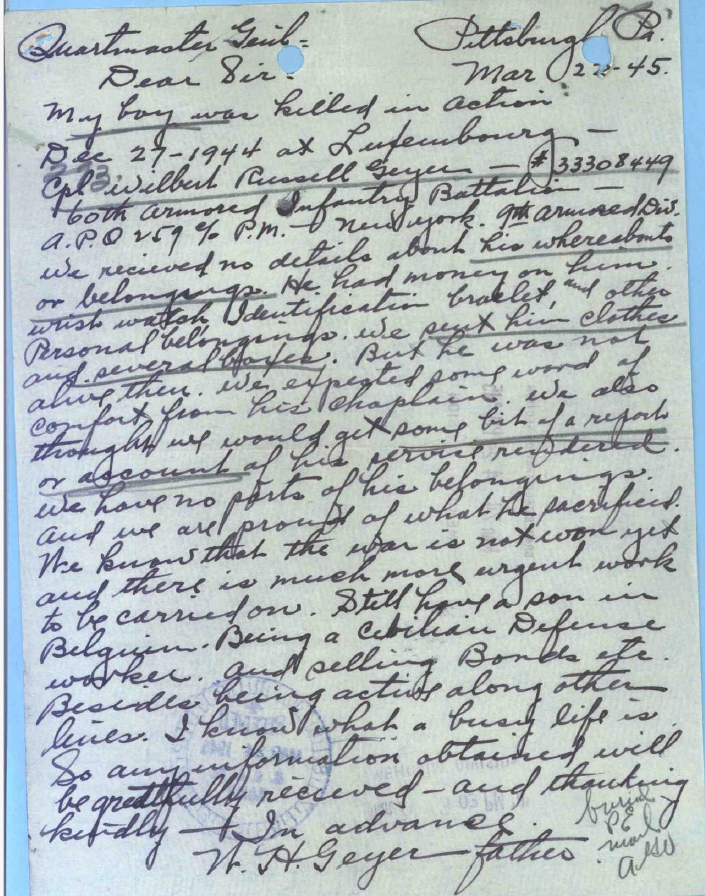 Quartmaster Genl- Pittsburgh Pa.
Dear Sir: Mar 22-45.
My boy was killed in action
Dec 27-1944 at Luxembourg -
Cpl Wilbert Russell Geyer - # 33308449
60th Armored Infantry Battalion -
A.P.O 259 % P.M. - New York. 9th Armored Div.
We recieved no details about his whereabouts
or belongings. He had money on him.
wrist watch, Identification braclet, and other
Personal belongings. We sent him clothes
and several boxes. But he was not
alive then. We expected some word of
comfort from his Chaplain. We also
thought we would get some bit of a report
or account of his service rendered.
We have no parts of his belongings.
And we are proud of what he sacrificed.
We know that the war is not won yet
and there is much more urgent work
to be carried on. Still have a son in
Belgium. Being a Civilian Defense
worker. and selling Bonds etc.
Besides being active along other
lines. I know what a busy life is.
So any information obtained will
be gratefully recieved - and thanking
kindly - In advance.
W. H. Geyer - father
buried
PE
mail
also